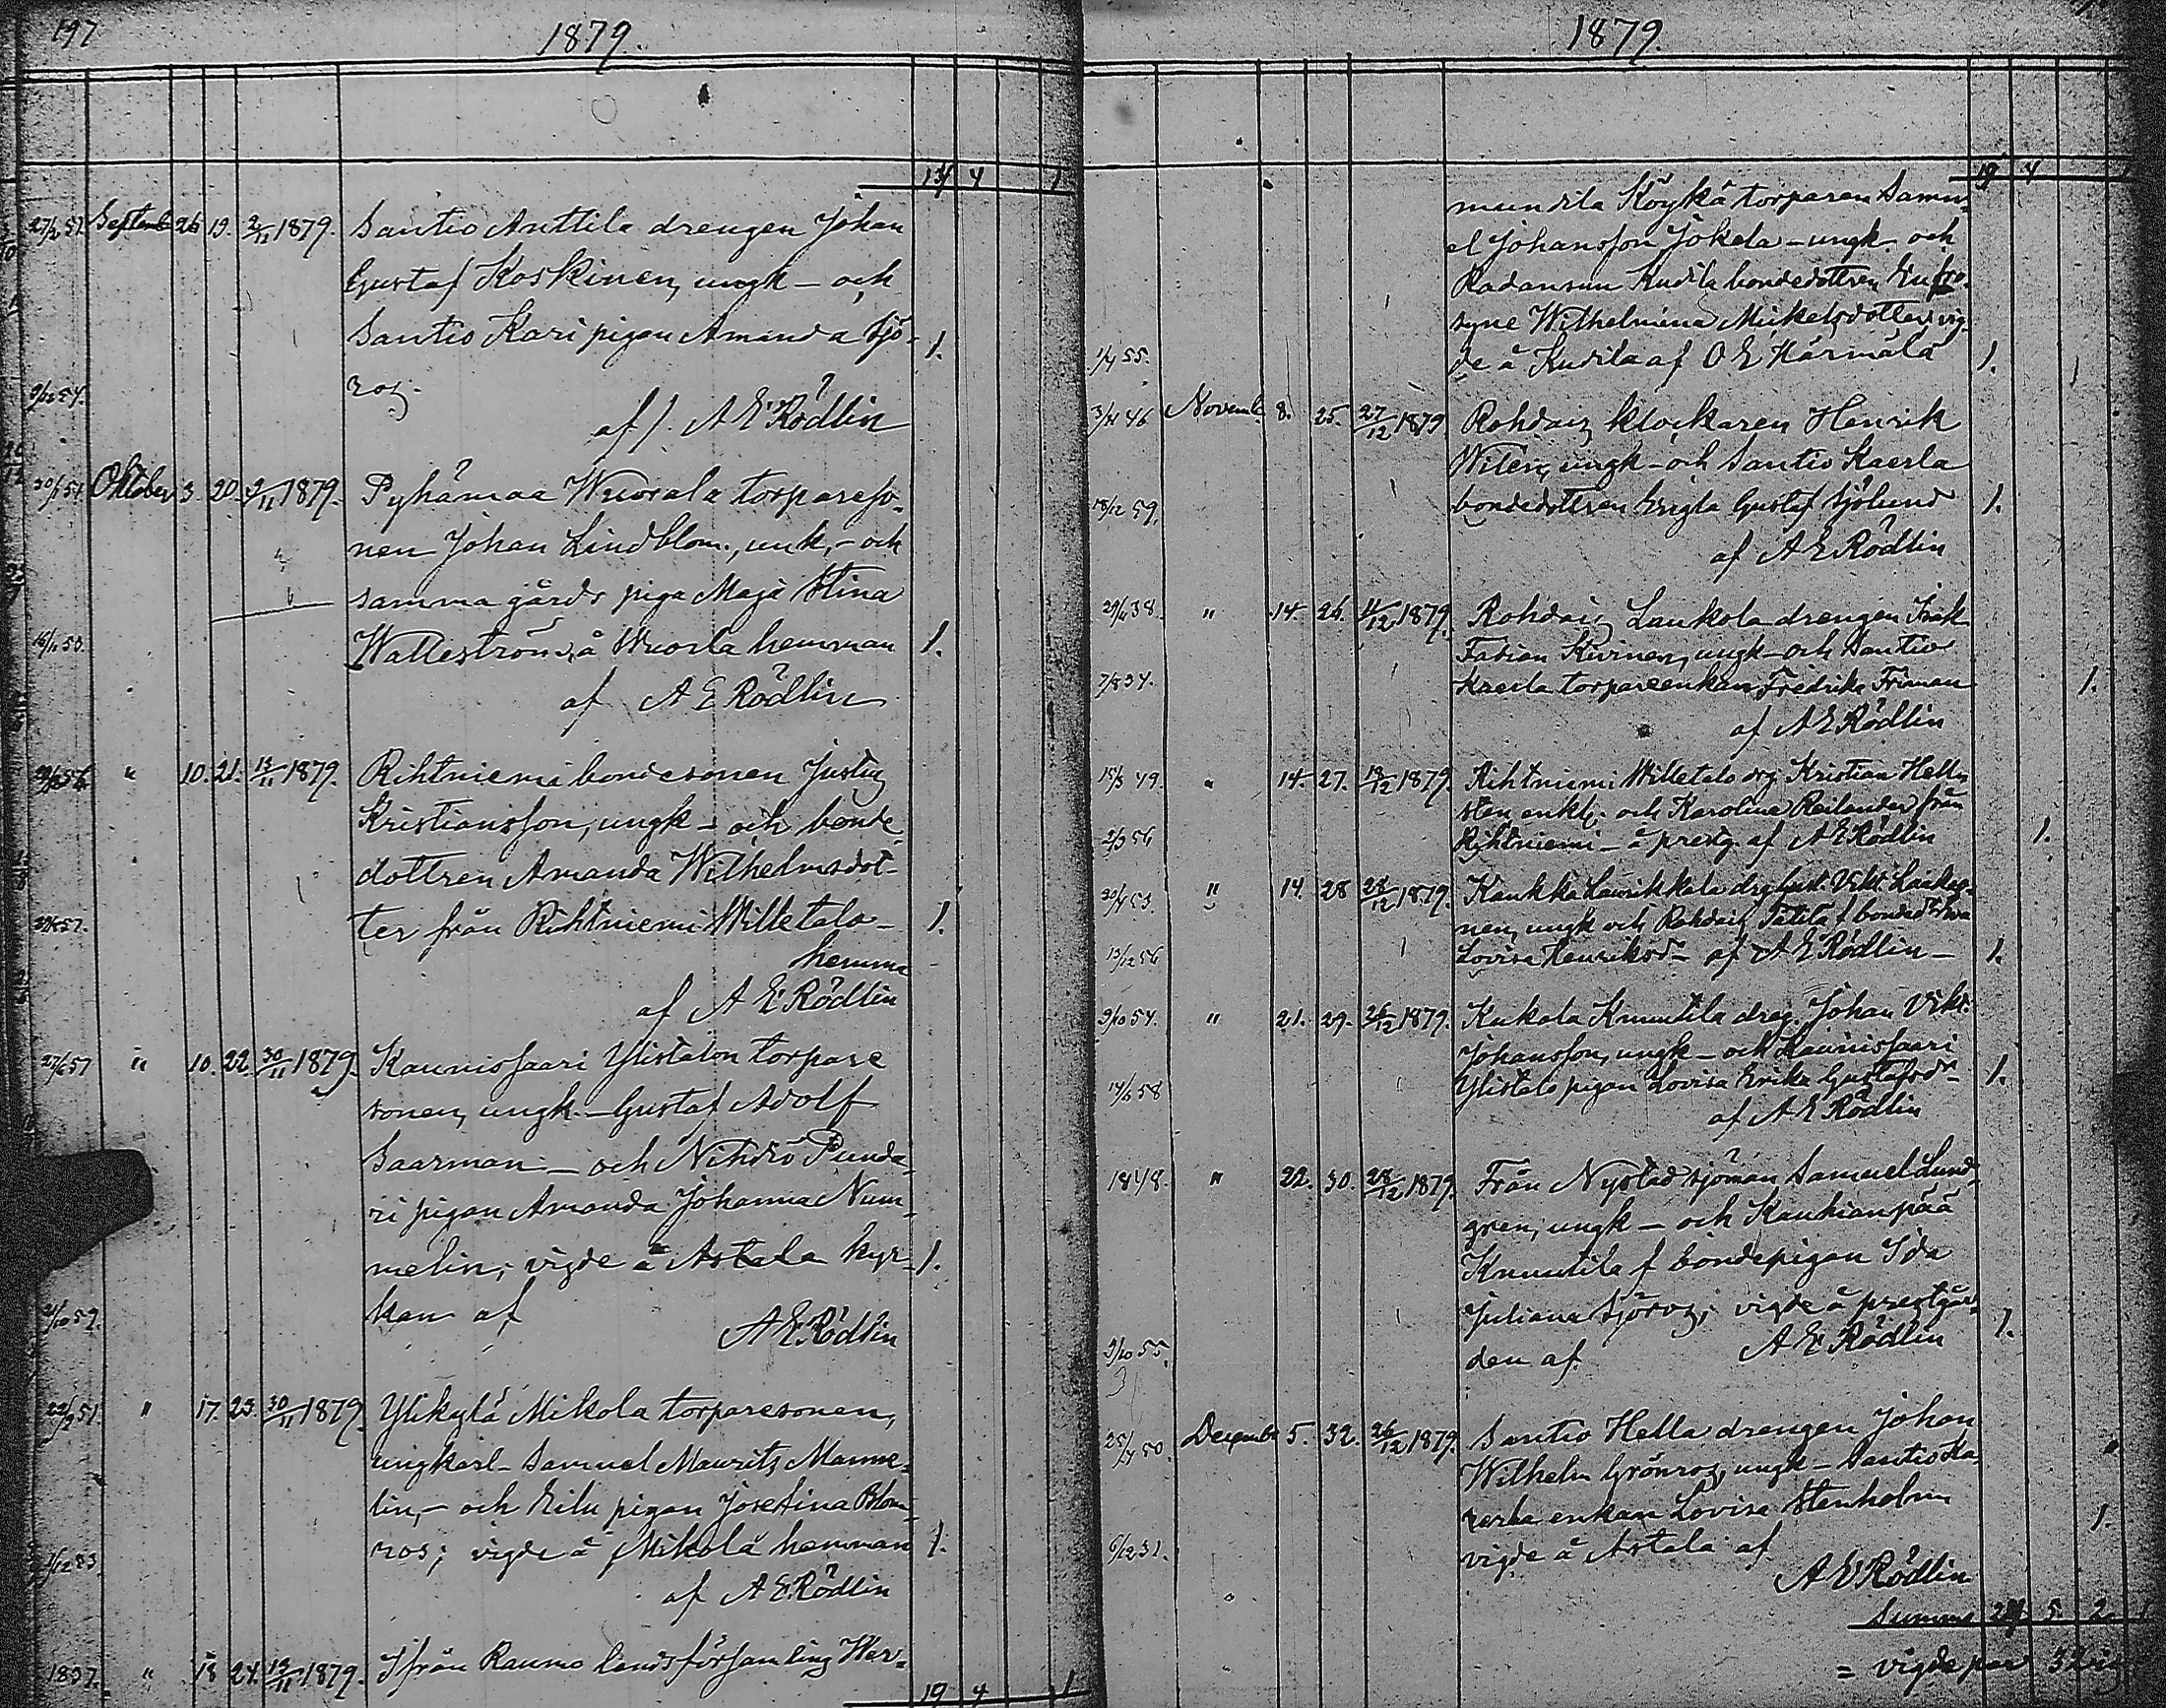 197
1879.
13 4 1
27/2 57. Septemb 26 19. 2/11 1879. Santio Anttila drengen Johan
Gustaf Koskinen, ungk – och
Santio Kari pigan Amanda Sjö- 1.
9/12 54. ros.
af A E Rödlin
30/1 54. Oktober 3. 20. 2/11 1879. Pyhämaa Wuorala torpareso-
nen Johan Lindblom, unk, – och
samma gårds piga Maja Stina
18/11 50. Walleström, å Wuorla hemman 1.
af A E Rödlin
" 10. 21. 13/11 1879. Rihtniemi bondesonen Justus
Kristiansson, ungk – och bonde
dottren Amanda Wilhelmsdot-
57. ter från Rihtniemi Willetalo – 1.
hemma
af A E Rödlin
27/6 57 " 10. 22. 30/11 1879. Kaunissaari Ylistalon torpare
sonen, ungk. – Gustaf Adolf
Saarman – och Nihdiö Punda-
ri pigan Amanda Johanna Num-
melin; vigde å Astala kyr- 1.
59. kan af
A E Rödlin
22/9 51. " 17. 23. 30/11 1879. Ylikylä Mikola torparesonen,
ungkarl – Samuel Maurits Manne-
lin, – och Eilu pigan Josefina Blom-
ros; vigde å Mikola hemman 1.
af A E Rödlin
1837. " 18 24. 13/11 1879. Ifrån Raumo landsförsamling Wer-
19 4 1
1879.
19 4
mundila Köykä torparen Samu-
el Johansson Jokela – ungk och
Radansuu Kudila bondedottren Eufro-
syne Wilhelmina Mickelsdotter, vig-
1/4 55. de å Kudila af O E Härmälä 1.
46 Novemb. 8. 25. 27/12 1879. Rohdais klockaren Henrik
Witen, ungk – och Santio Kaerla
18/12 59. bondedottren Gustaf Sjölund 1.
af A E Rödlin
38. " 14. 26. 1879. Rohdais Laukola drengen Isak
Fabian Kivinen, ungk – och Santio
7/8 34. Kaerla torpareenkan Fredrika Friman 1.
af A E Rödlin
15/3 49. " 14. 27. 18/12 1879. Rihtniemi Willetalo drg Kristian Hell-
sten, enkl; och Karolina Reilander från
2/3 56 Rihtniemi – å prestg. af A E Rödlin 1.
53. " 14. 28 28/12 1879. Kaukka Laurikkala drg Gust. Vikt. Laakso-
nen, ungk och Rohdais Tiitila f. bondedtr Eva
13/12 56 Lovisa Henriksd – af A E Rödlin – 1.
9/10 54. " 21. 29. 26/12 1879. Kukola Knuutila dreg. Johan Vikt.
Johansson, ungk – och Kaunissaari
14/6 58 Ylistalo pigan Lovisa Erika Gustafsdr – 1.
af A E Rödlin
1848. " 22. 30. 28/12 1879. Från Nystad sjöman Samuel Lund-
gren, ungk – och Kauhianpää
Knuutila f bondepigan Ida
Juliana Sjöros; vigde å prestgår- 1.
9/10 55. den af A E Rödlin
31
25/4 50. December 5. 32. 26/12 1879. Santio Hella drengen Johan
Wilhelm Grönros, ungk – Santio Ka-
verla enkan Lovisa Stenholm 1.
6/12 31. vigde å Astala af
A E Rödlin
Summa 24 5 2 1
= vigde par 32